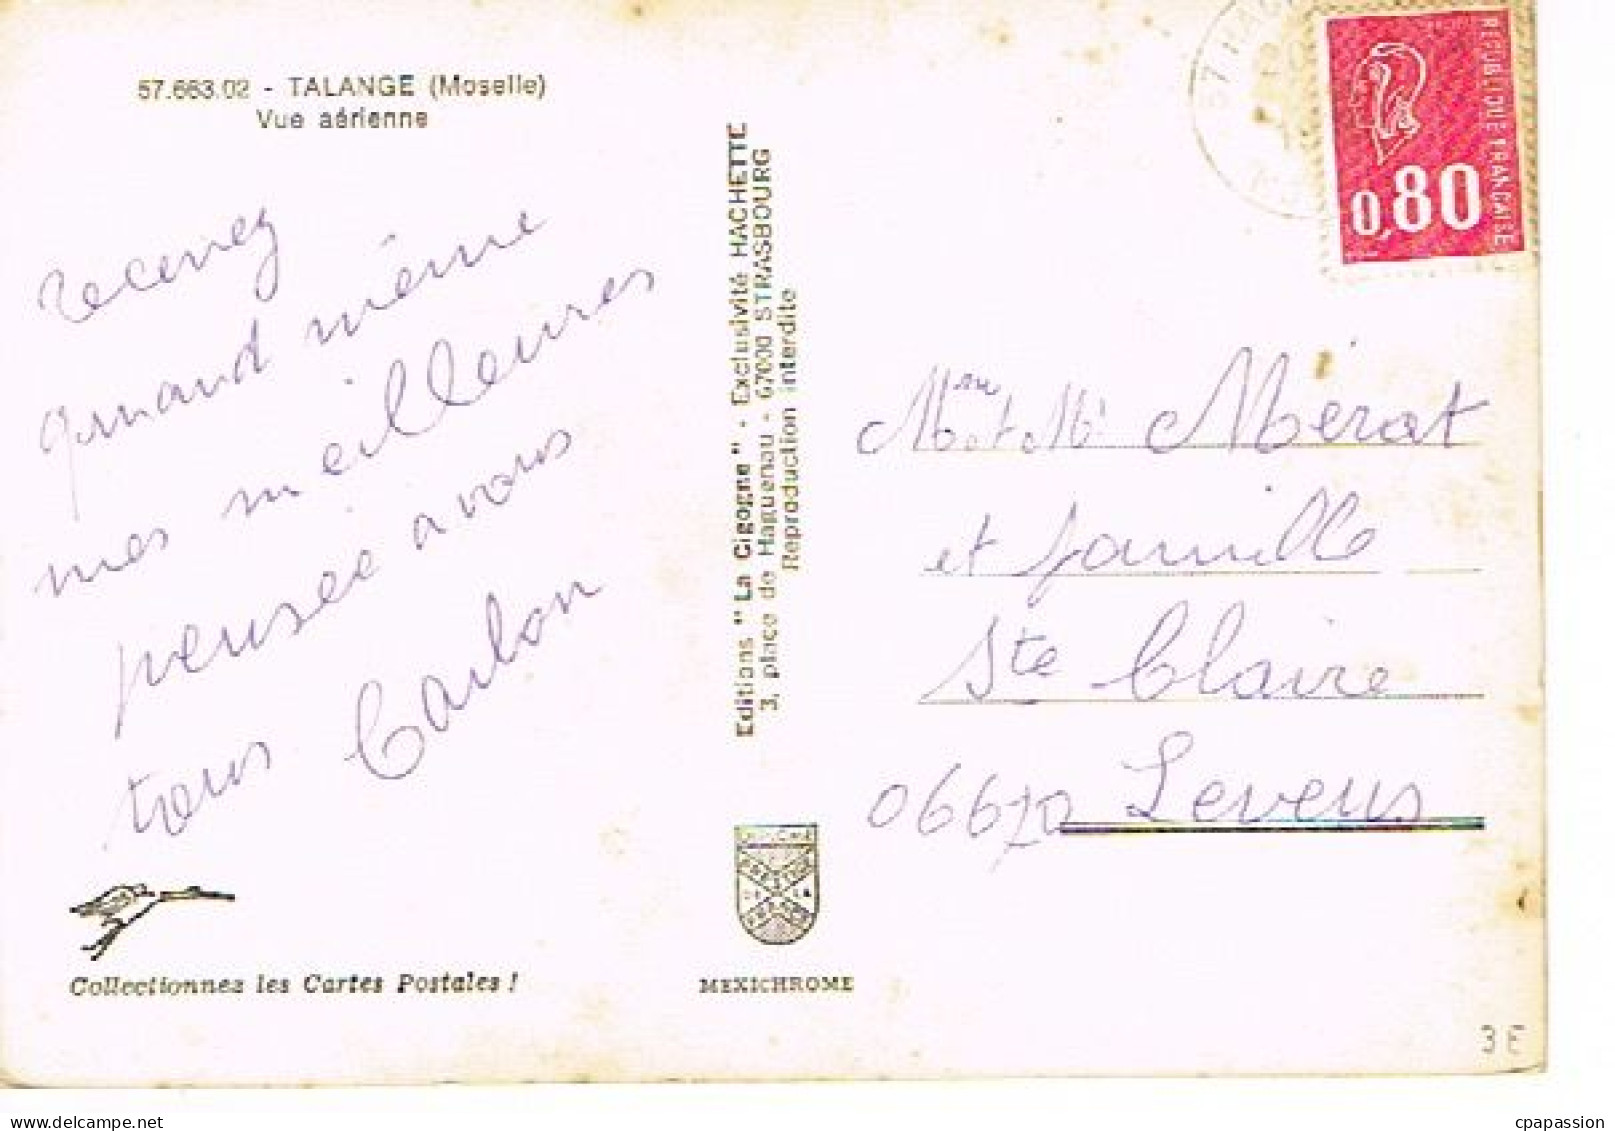 57.663.02 - TALANGE (Moselle)
Vue aérienne
recevez
quand même
mes meilleures
pensée a vous
tous Carlon
Collectionnez les Cartes Postales !
Editions "La Cigogne" - Exclusivité HACHETTE
3, place de Haguenau - 67000 STRASBOURG
Reproduction interdite
MEXICHROME
REPUBLIQUE FRANCAISE
0,80
Mme et Mr Mérat
et famille
Ste Claire
06670 Levens
3 E
cpapassion